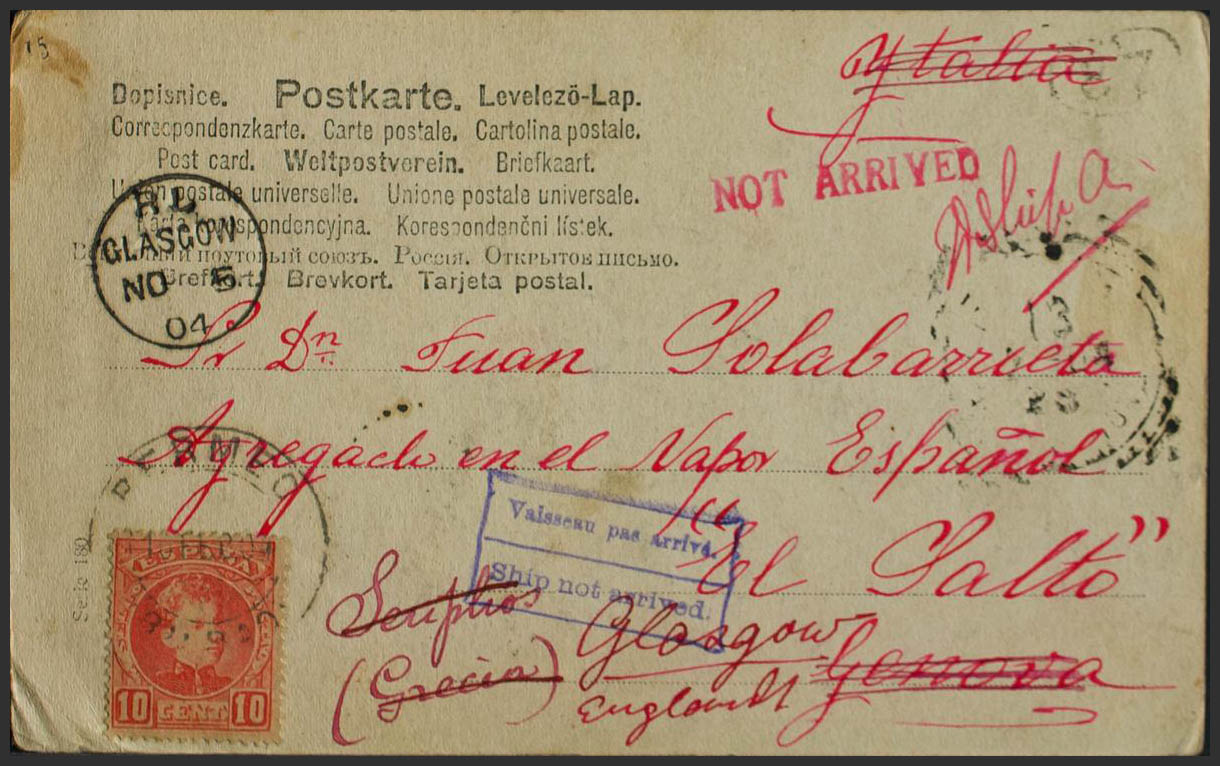 15
Ytalia
Dopisnice. Postkarte. Levelezö-Lap.
Correspondenzkarte. Carte postale. Cartolina postale.
Post card. Weltpostverein. Briefkaart.
NOT ARRIVED
Union postale universelle. Unione postale universale.
Karta korespondencyjna. Korespondenční lístek.
поутовый союзъ. Россія. Открытое письмо.
Brefkort. Brevkort. Tarjeta postal.
GLASGOW
NO 5
04
13
Sr Dn Juan Solabarrieta
Agregado en el Napor Español
BERMEO
Vaisseau pas arrivé.
"El Salto"
Ship not arrived.
Seriphos Glasgow Genova
(Grecia) England
Serie 180
ESPAÑA
10 CENT 10